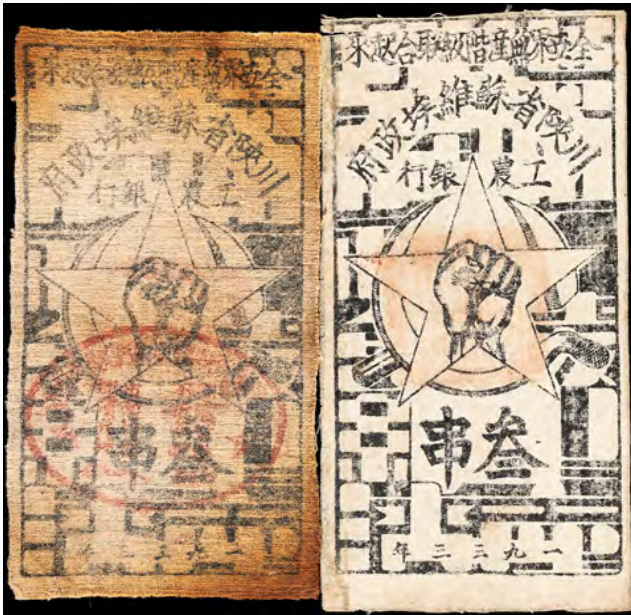 全世界無産階級聯合起来
川陝省蘇維埃政府
工農銀行
叁串
全世界無産階級聯合起来
川陝省蘇維埃政府
工農銀行
叁串
一九三三年